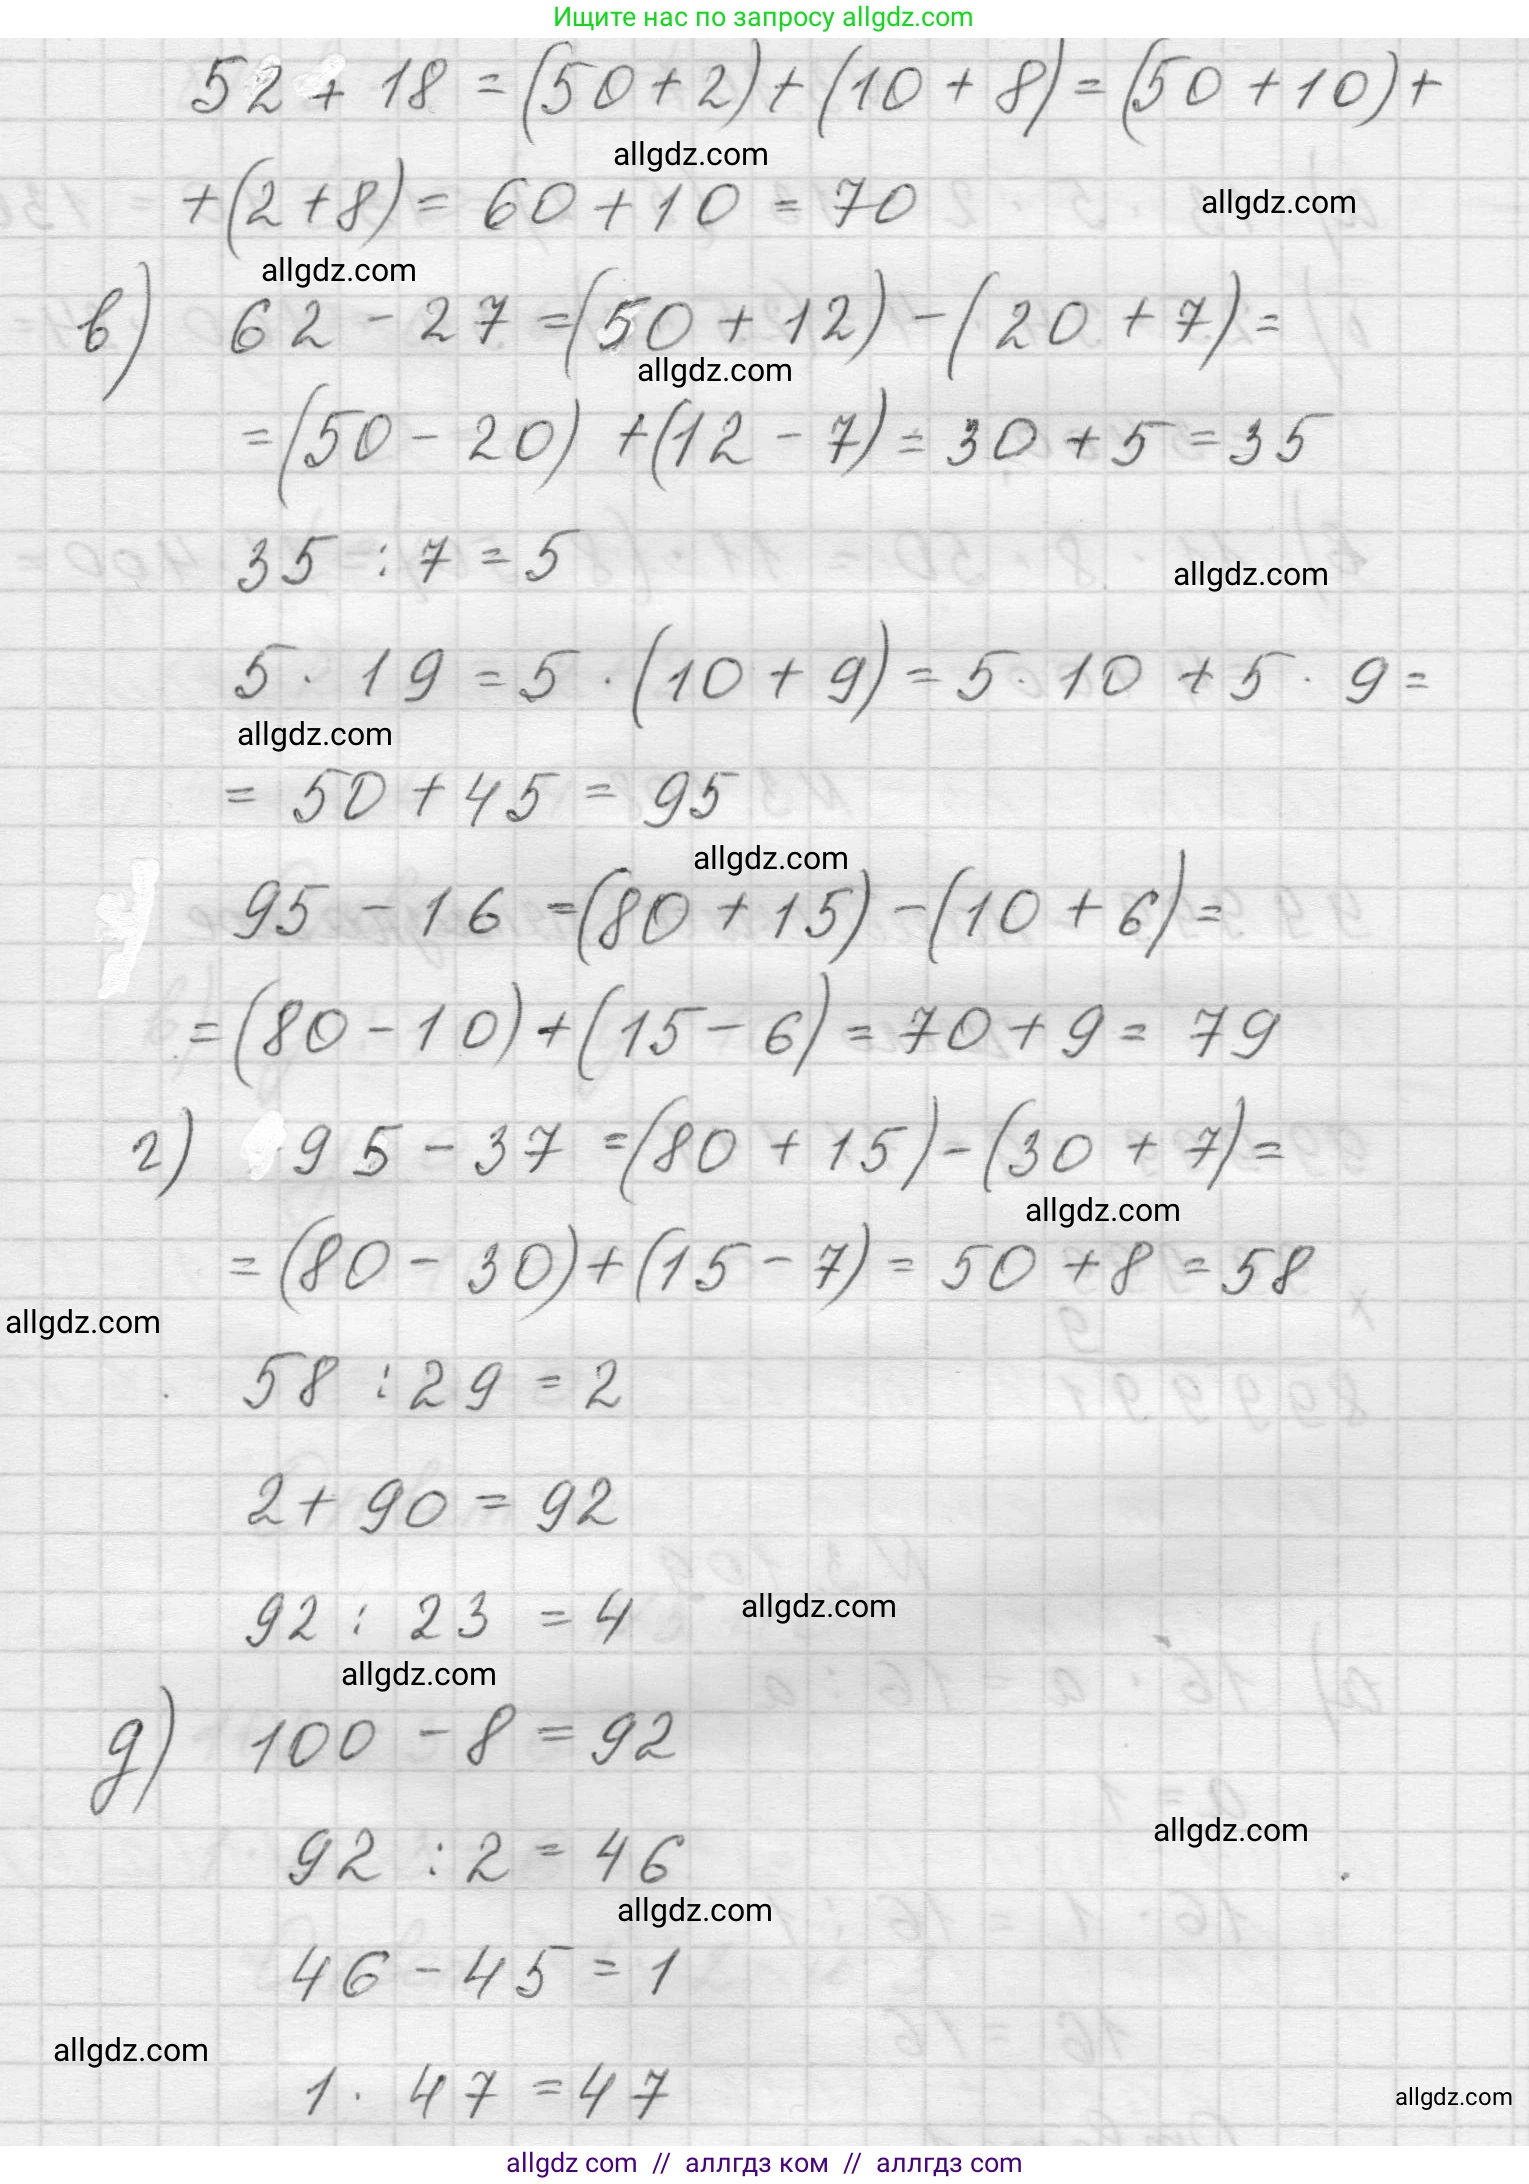 Ищите нас по запросу allgdz.com
52 + 18 = (50 + 2) + (10 + 8) = (50 + 10) +
allgdz.com
+ (2 + 8) = 60 + 10 = 70
allgdz.com
allgdz.com
в) 62 - 27 = (50 + 12) - (20 + 7) =
allgdz.com
= (50 - 20) + (12 - 7) = 30 + 5 = 35
35 : 7 = 5
allgdz.com
5 · 19 = 5 · (10 + 9) = 5 · 10 + 5 · 9 =
allgdz.com
= 50 + 45 = 95
allgdz.com
95 - 16 = (80 + 15) - (10 + 6) =
= (80 - 10) + (15 - 6) = 70 + 9 = 79
г) 95 - 37 = (80 + 15) - (30 + 7) =
allgdz.com
= (80 - 30) + (15 - 7) = 50 + 8 = 58
allgdz.com
58 : 29 = 2
2 + 90 = 92
92 : 23 = 4
allgdz.com
allgdz.com
д) 100 - 8 = 92
allgdz.com
92 : 2 = 46
allgdz.com
46 - 45 = 1
allgdz.com
1 · 47 = 47
allgdz.com
allgdz.com // аллгдз ком // аллгдз com